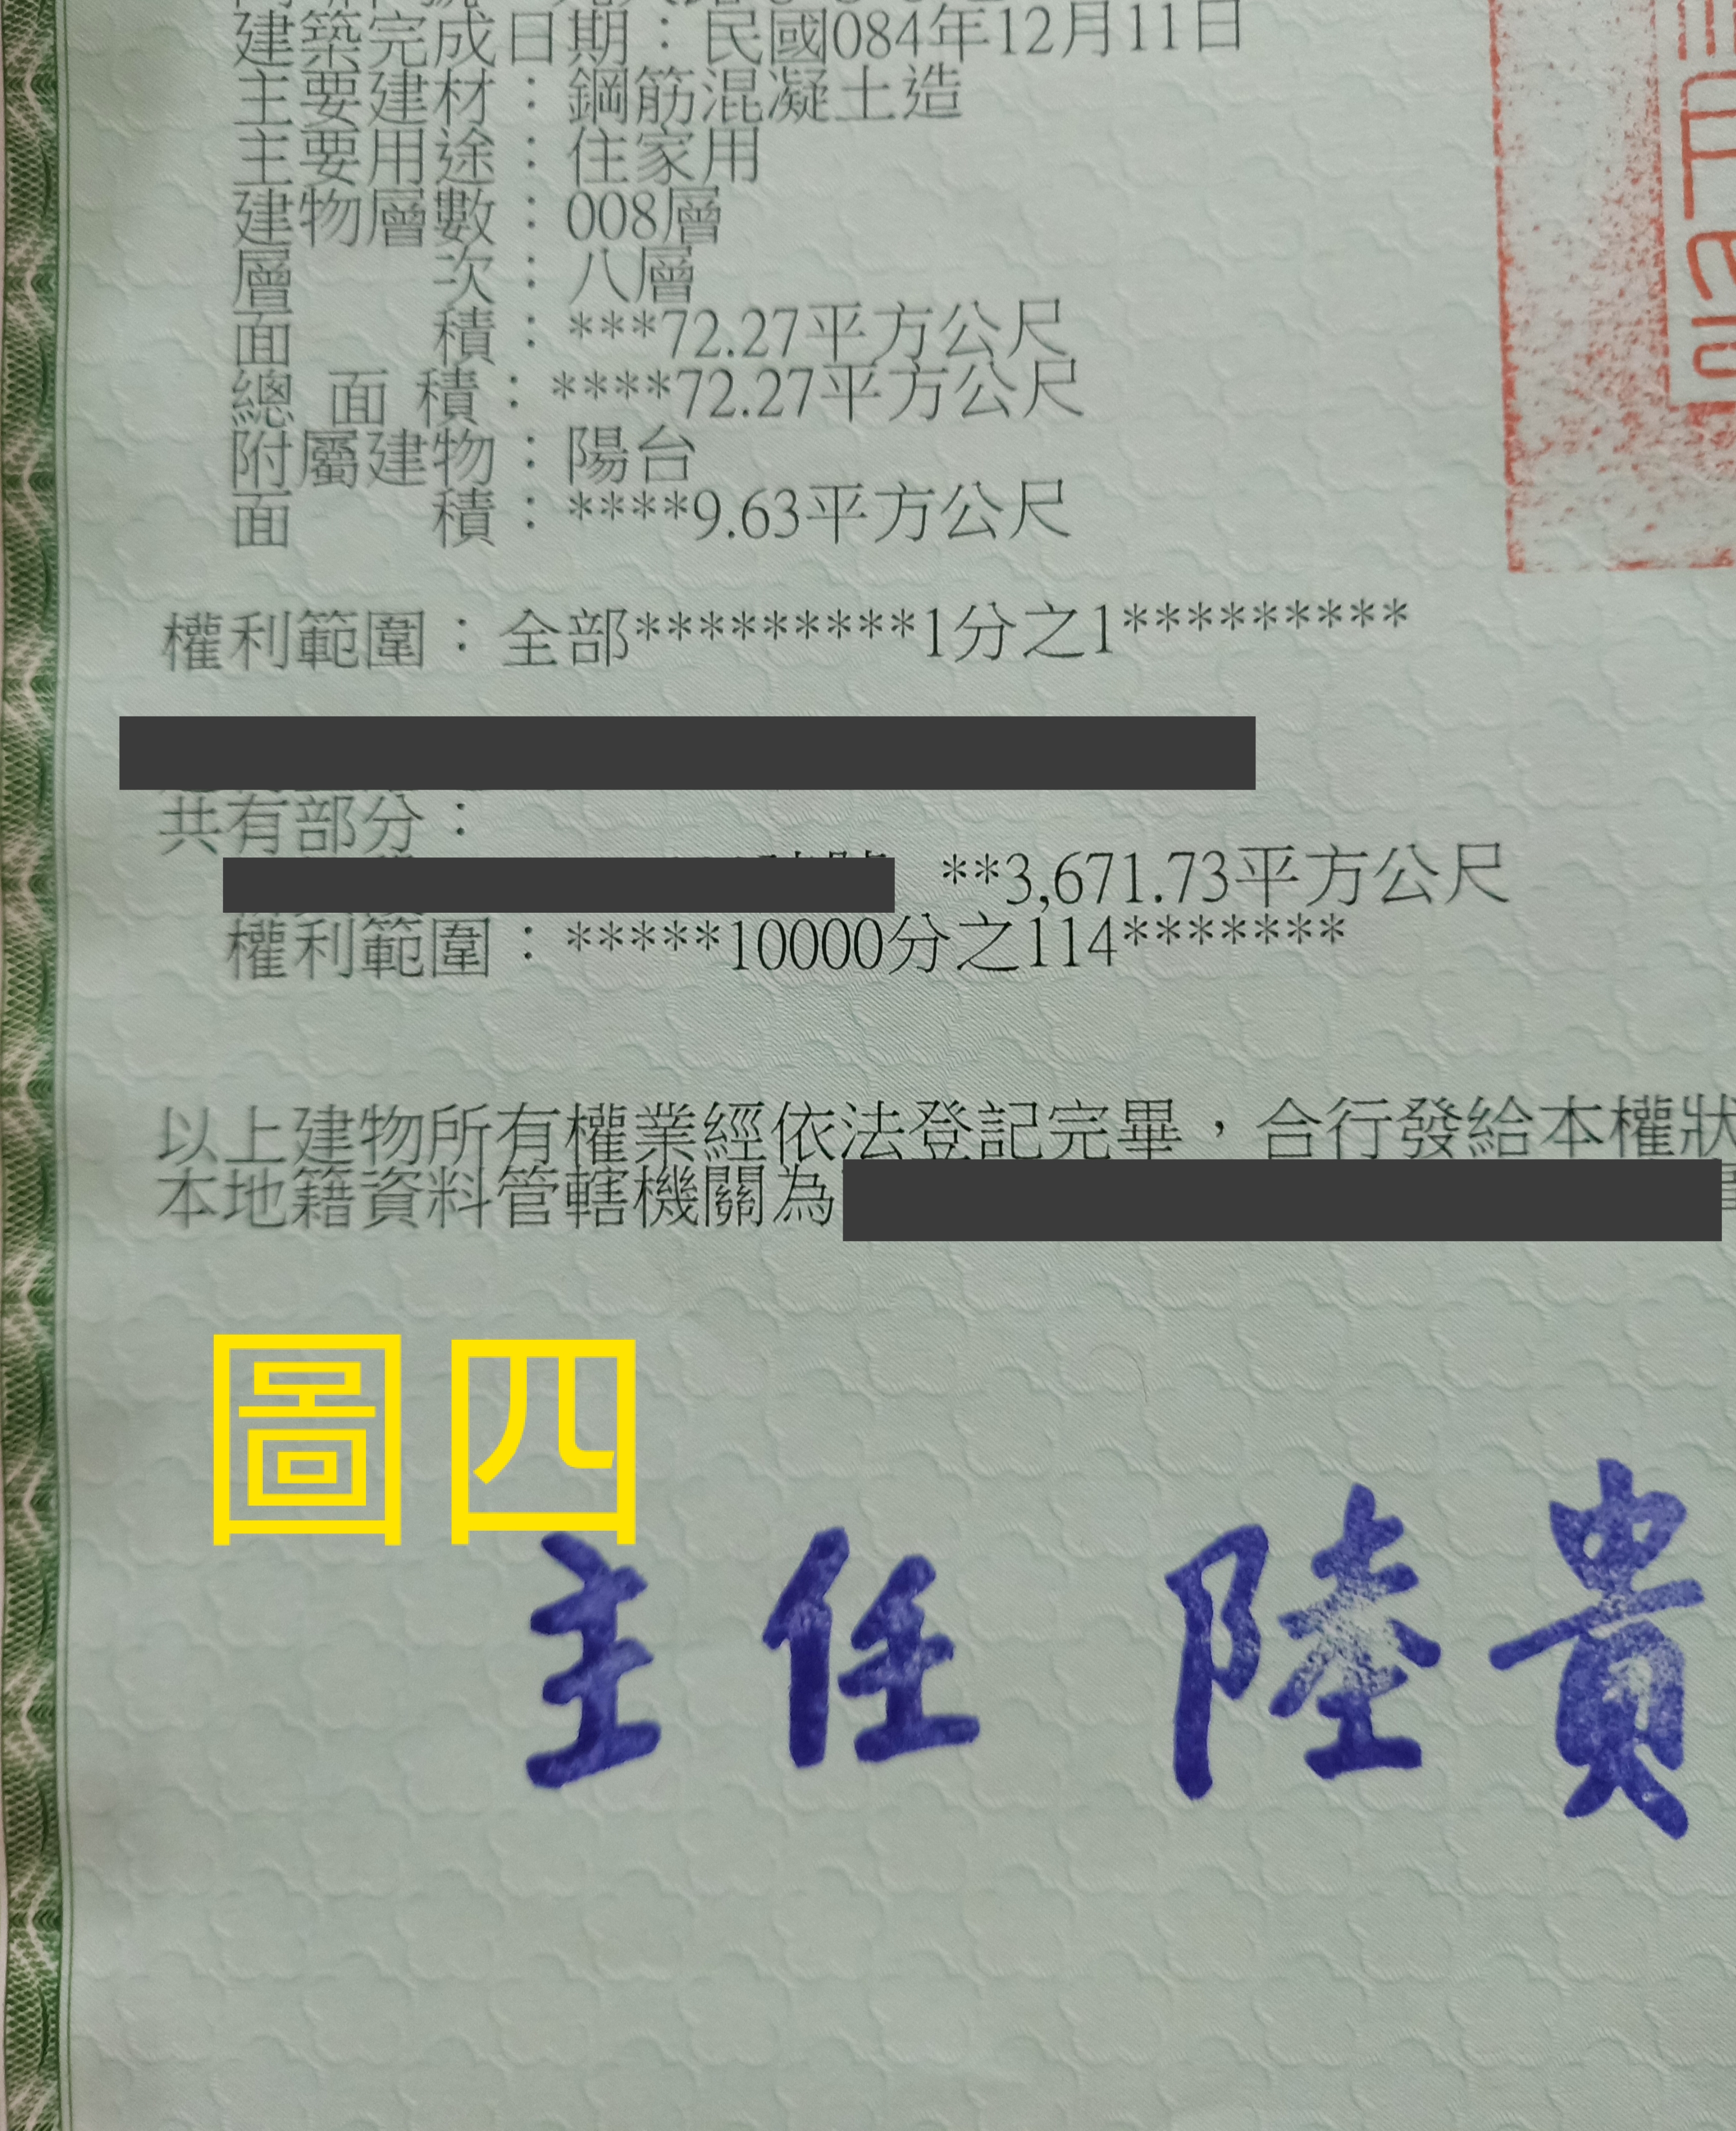 建築完成日期：民國084年12月11日
主要建材：鋼筋混凝土造
主要用途：住家用
建物層數：008層
層　　次：八層
面　　積：***72.27平方公尺
總 面 積：****72.27平方公尺
附屬建物：陽台
面　　積：****9.63平方公尺
權利範圍：全部*********1分之1*********
共有部分：
**3,671.73平方公尺
權利範圍：*****10000分之114*******
以上建物所有權業經依法登記完畢，合行發給本權狀
本地籍資料管轄機關為
圖四
主任 陸貴